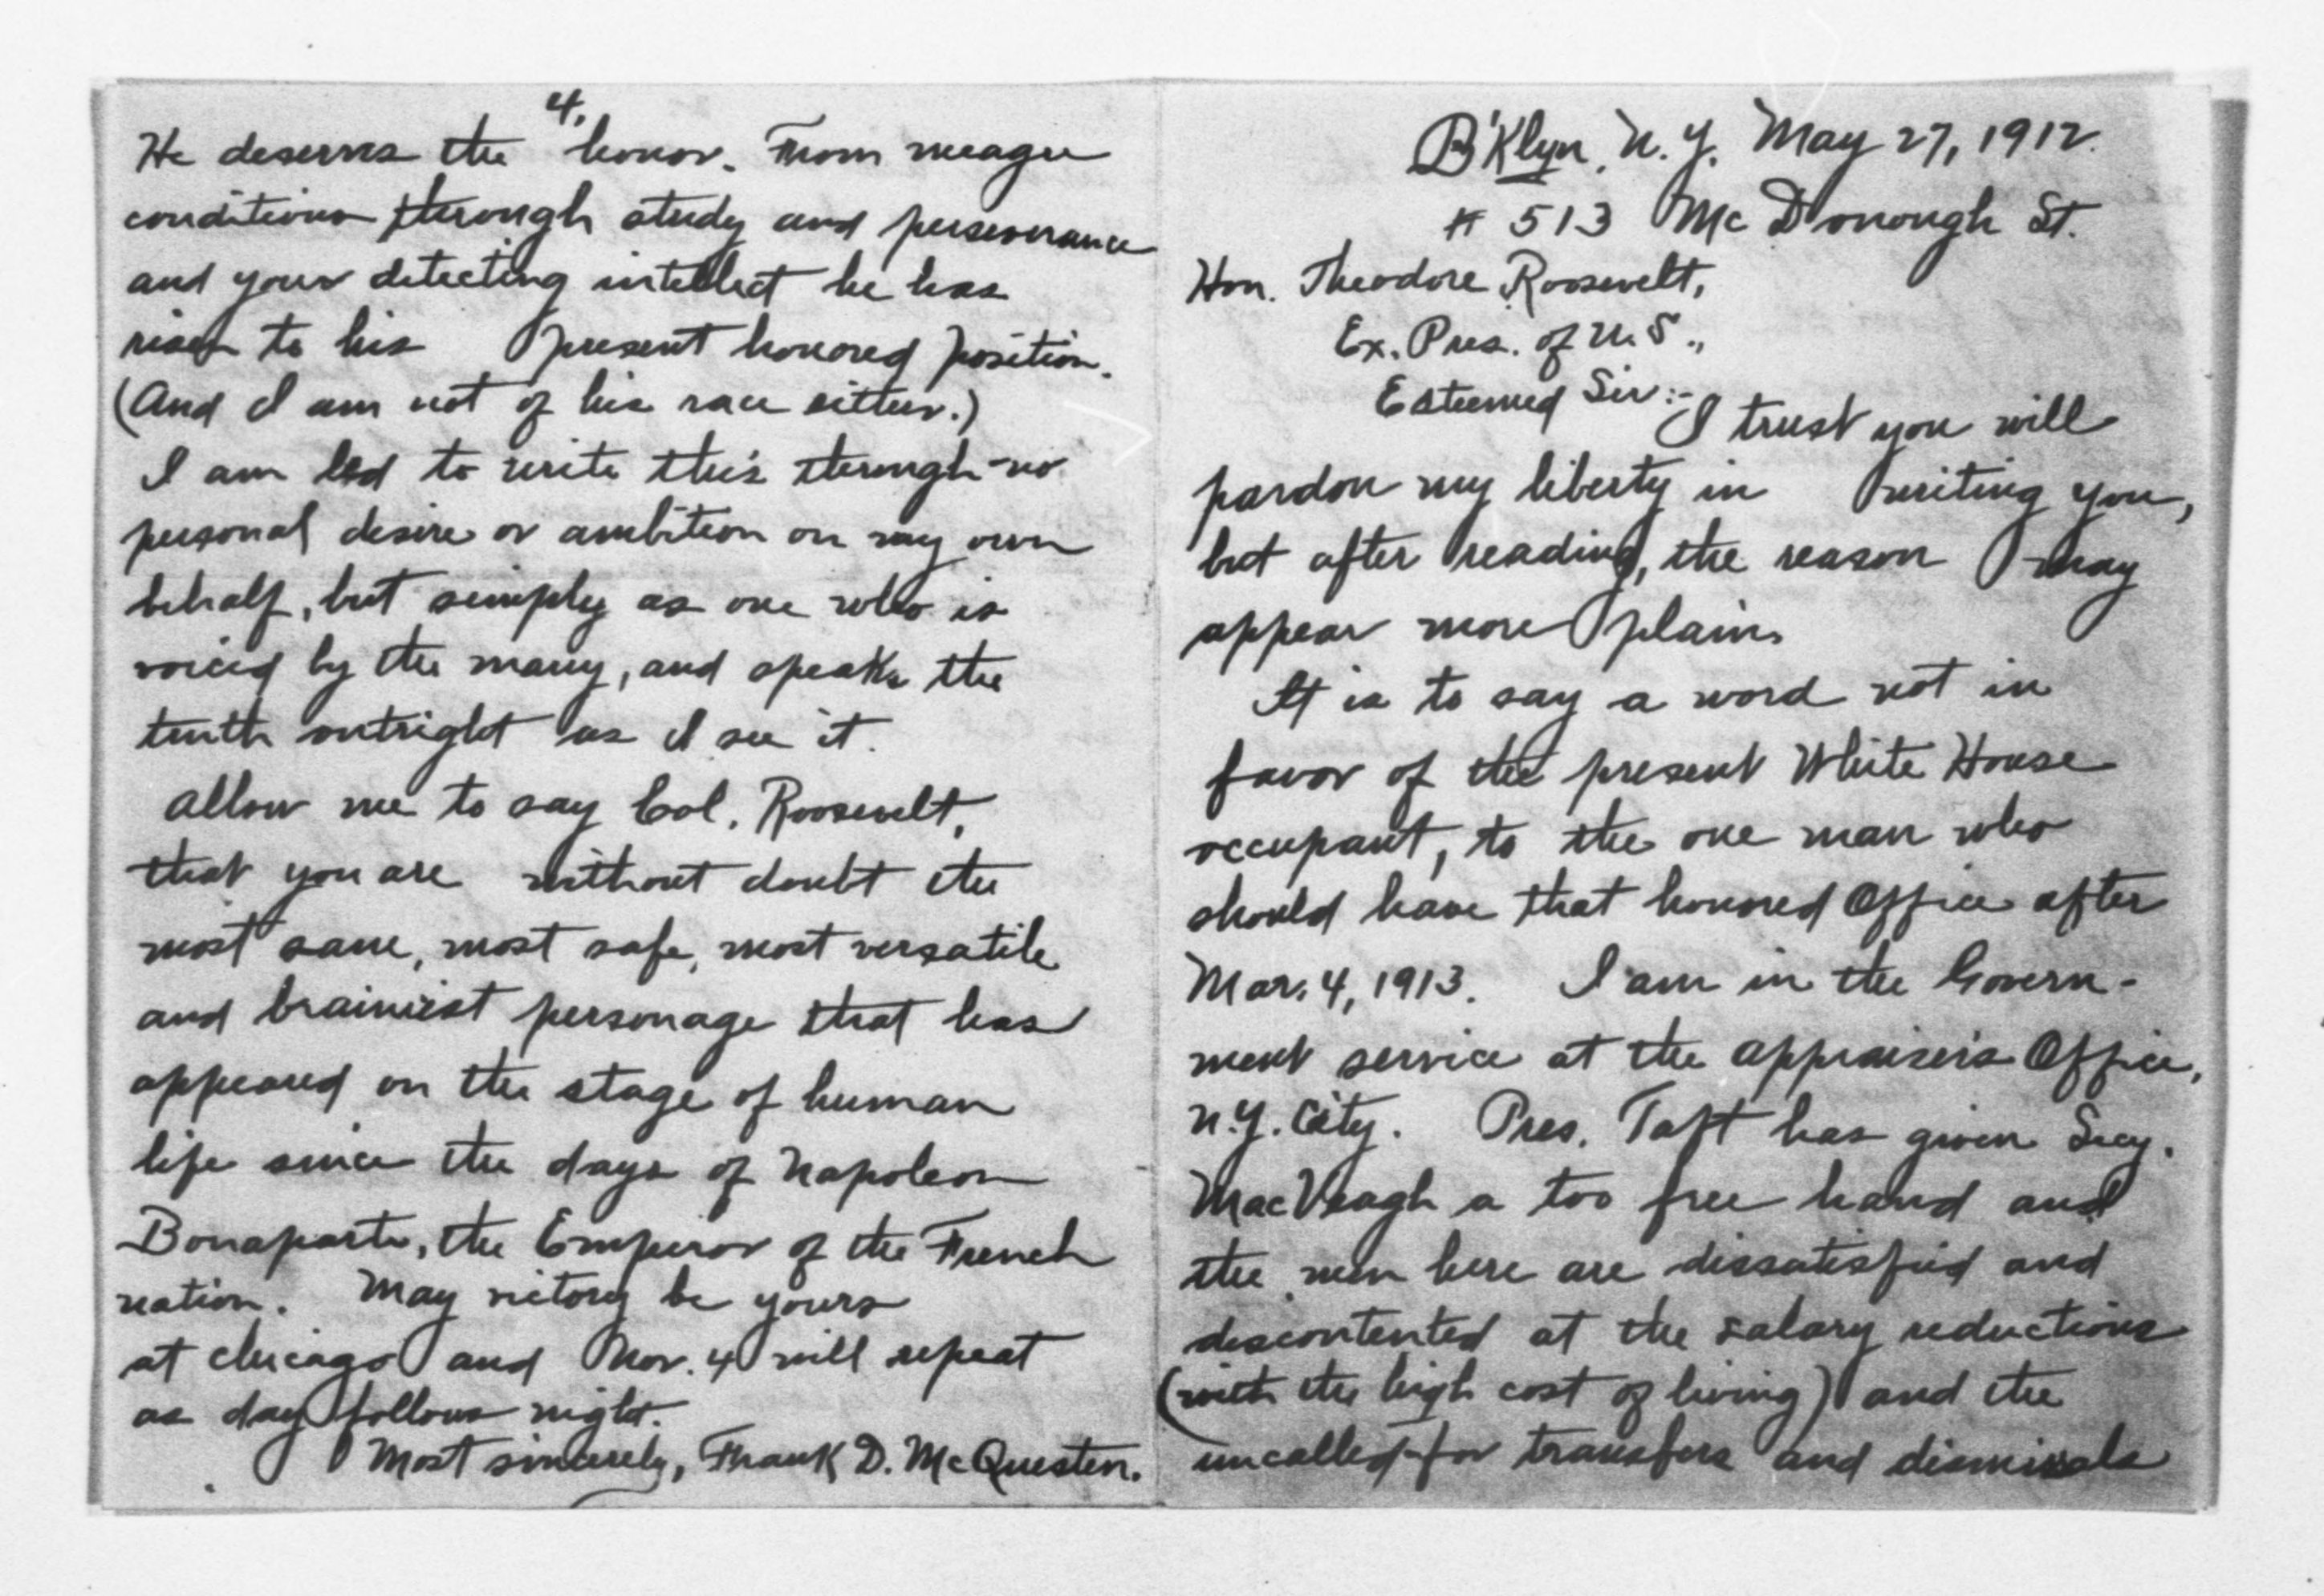 4.
He deserves the honor. From meagre
conditions through study and perseverance
and your detecting intellect he has
risen to his present honored position.
(And I am not of his race either.)
I am led to write this through no
personal desire or ambition on my own
behalf, but simply as one who is
voiced by the many, and speaks the
truth outright as I see it.
Allow me to say Col. Roosevelt,
that you are without doubt the
most sane, most safe, most versatile
and brainiest personage that has
appeared on the stage of human
life since the days of Napoleon
Bonaparte, the Emperor of the French
nation. May victory be yours
at Chicago and Nov. 4 will repeat
as day follows night.
Most sincerely, Frank D. McQuesten.
B'Klyn, N.Y. May 27, 1912.
# 513 McDonough St.
Hon. Theodore Roosevelt,
Ex. Pres. of U.S.,
Esteemed Sir:-
I trust you will
pardon my liberty in writing you,
but after reading, the reason may
appear more plain.
It is to say a word not in
favor of the present White House
occupant, to the one man who
should have that honored Office after
Mar. 4, 1913. I am in the Govern-
ment service at the Appraiser's Office,
N.Y. City. Pres. Taft has given Secy.
MacVeagh a too free hand and
the men here are dissatisfied and
discontented at the salary reductions
(with the high cost of living) and the
uncalled-for transfers and dismissals